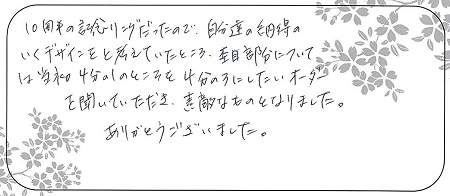 10周年の記念リングだったので、自分達の納得の
いくデザインをと考えていたところ、杢目部分について
は当初4分の1のところを4分の3にしたいオーダー
を聞いていただき、素敵なものとなりました。
ありがとうございました。